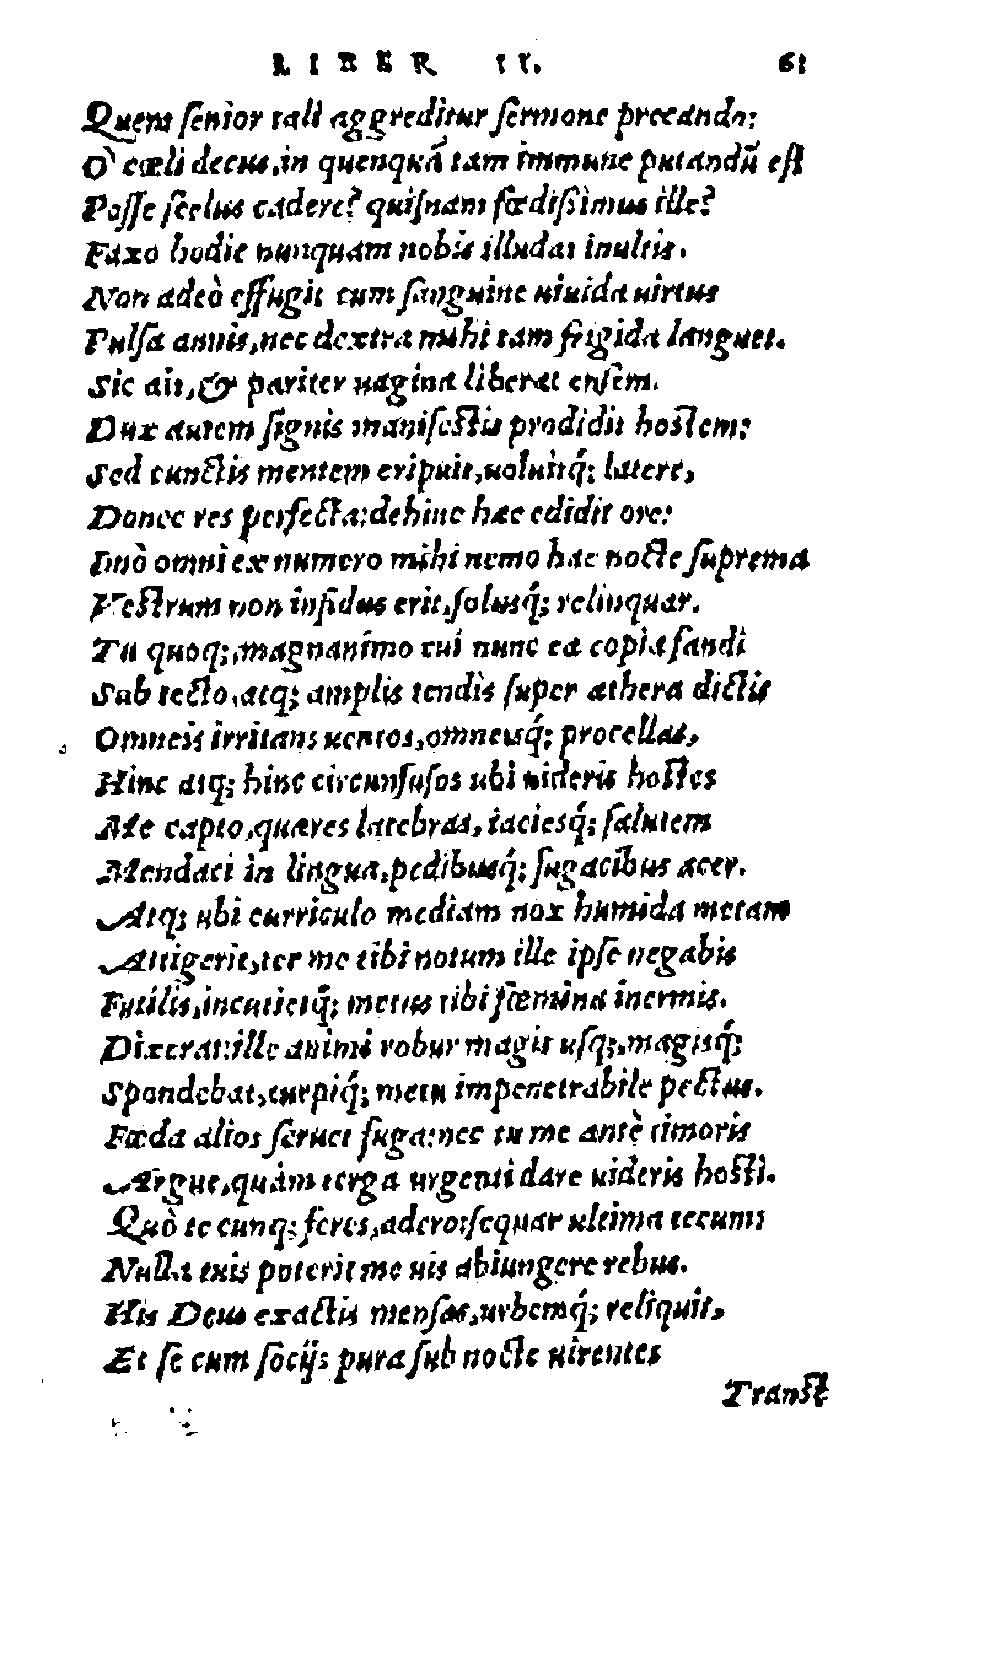 LIBER II. 61
Quem ſenior tali aggreditur ſermone precando:
O' cœli decus, in quenquã tam immune putandũ eſt
Poſſe ſcelus cadere? quiſnam fœdiſsimus ille?
Faxo hodie nunquam nobis illudat inultis.
Non adeò effugit cum ſanguine uiuida uirtus
Pulſa annis, nec dextra mihi tam frigida languet.
Sic ait, & pariter uagina liberat enſem.
Dux autem ſignis manifeſtis prodidit hoſtem:
Sed cunctis mentem eripuit, uoluitq́; latere,
Donec res perfecta: dehinc hæc edidit ore:
Imò omni ex numero mihi nemo hac nocte ſuprema
Veſtrum non infidus erit, ſolusq́; relinquar.
Tu quoq;, magnanimo cui nunc ea copia fandi
Sub tecto, atq; amplis tendis ſuper æthera dictis
Omneis irritans uentos, omneisq́; procellas,
Hinc atq; hinc circunfuſos ubi uideris hoſtes
Me capto, quæres latebras, iaciesq́; ſalutem
Mendaci in lingua, pedibusq́; fugacibus acer.
Atq; ubi curriculo mediam nox humida metam
Attigerit, ter me tibi notum ille ipſe negabis
Futilis, incutietq́; metus tibi fœmina inermis.
Dixerat: ille animi robur magis uſq;, magisq́;
Spondebat, turpiq́; metu impenetrabile pectus.
Fœda alios ſeruet fuga: nec tu me antè timoris
Argue, quàm terga urgenti dare uideris hoſti.
Quò te cunq; feres, adero: ſequar ultima tecum:
Nulla tuis poterit me uis abiungere rebus.
His Deus exactis menſas, urbemq́; reliquit,
Et ſe cum ſocijs pura ſub nocte uirentes
Tranſt